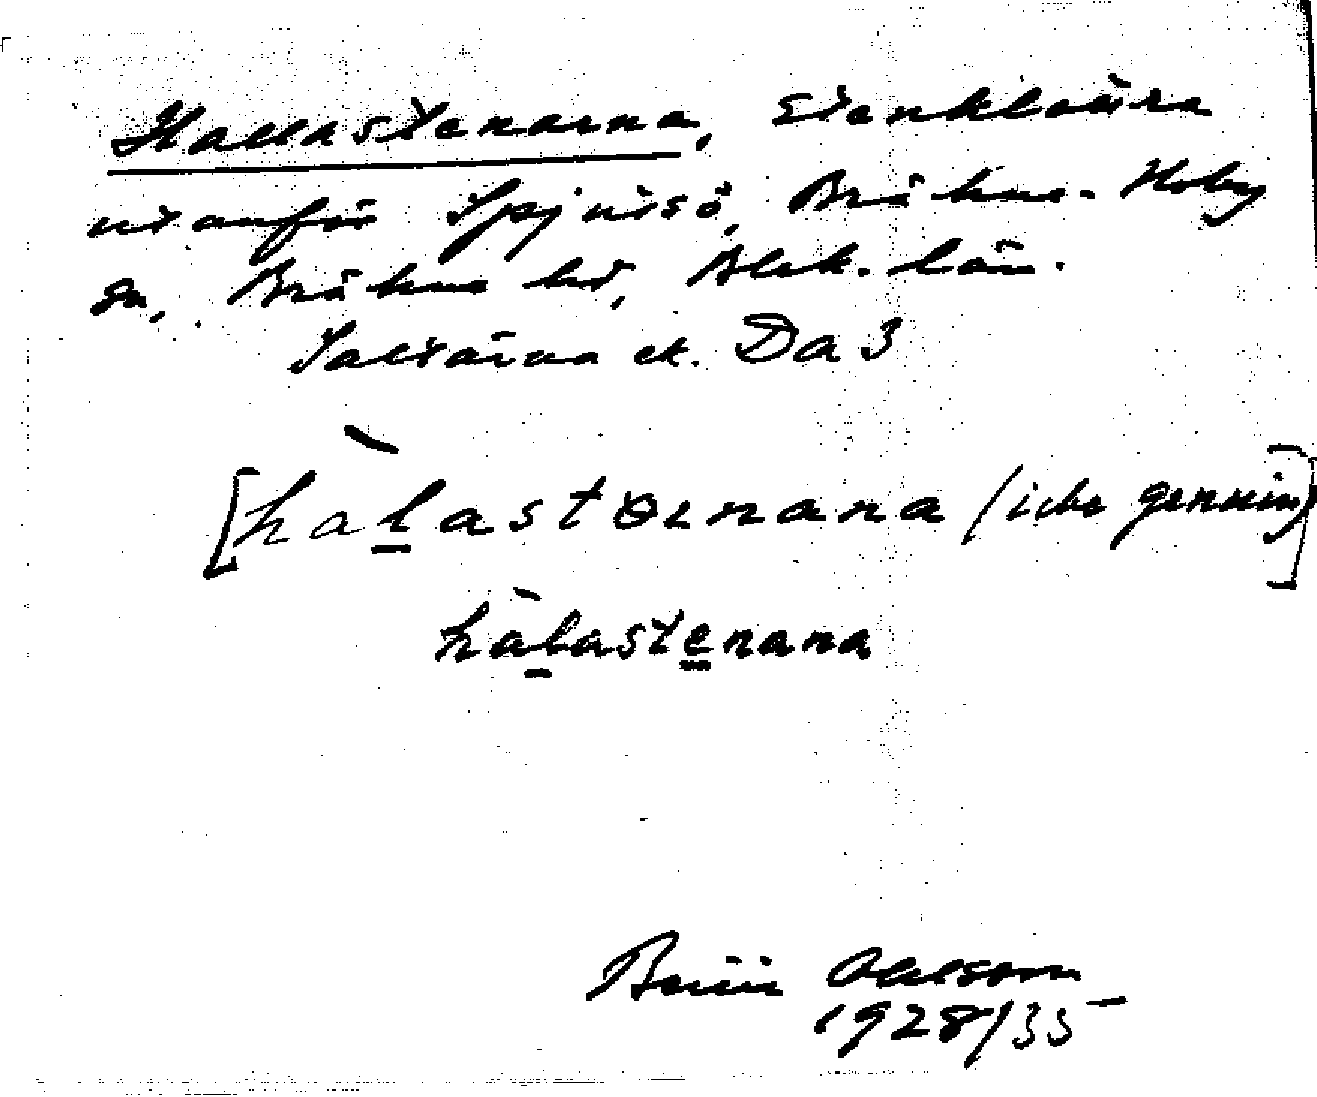 Hallastenarna, stenklabbra
utanför Spjutsö, Bräkne-Hoby
sn, Bräkne hd, Blek. län.
Saltärna ek. Da 3
[hàlastenana (icke genuin)]
hàlastenana
Bertil Ohlsson
1928/35